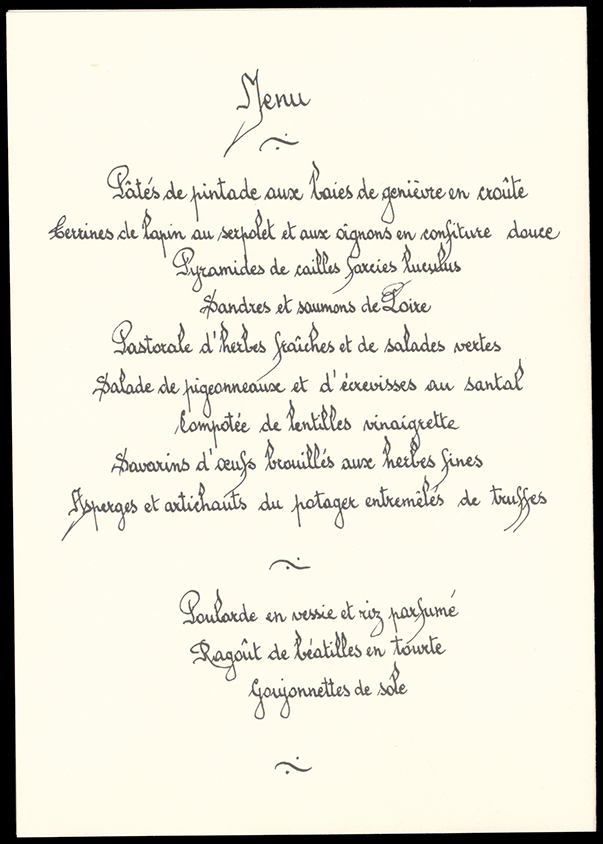 Menu
Pâtés de pintade aux baies de genièvre en croûte
Terrines de lapin au serpolet et aux oignons en confiture douce
Pyramides de cailles farcies lucullus
Sandres et saumons de Loire
Pastorale d'herbes fraîches et de salades vertes
Salade de pigeonneaux et d'écrevisses au santal
Compotée de lentilles vinaigrette
Savarins d'œufs brouillés aux herbes fines
Asperges et artichauts du potager entremêlés de truffes
Poularde en vessie et riz parfumé
Ragoût de béatilles en tourte
Goujonnettes de sole